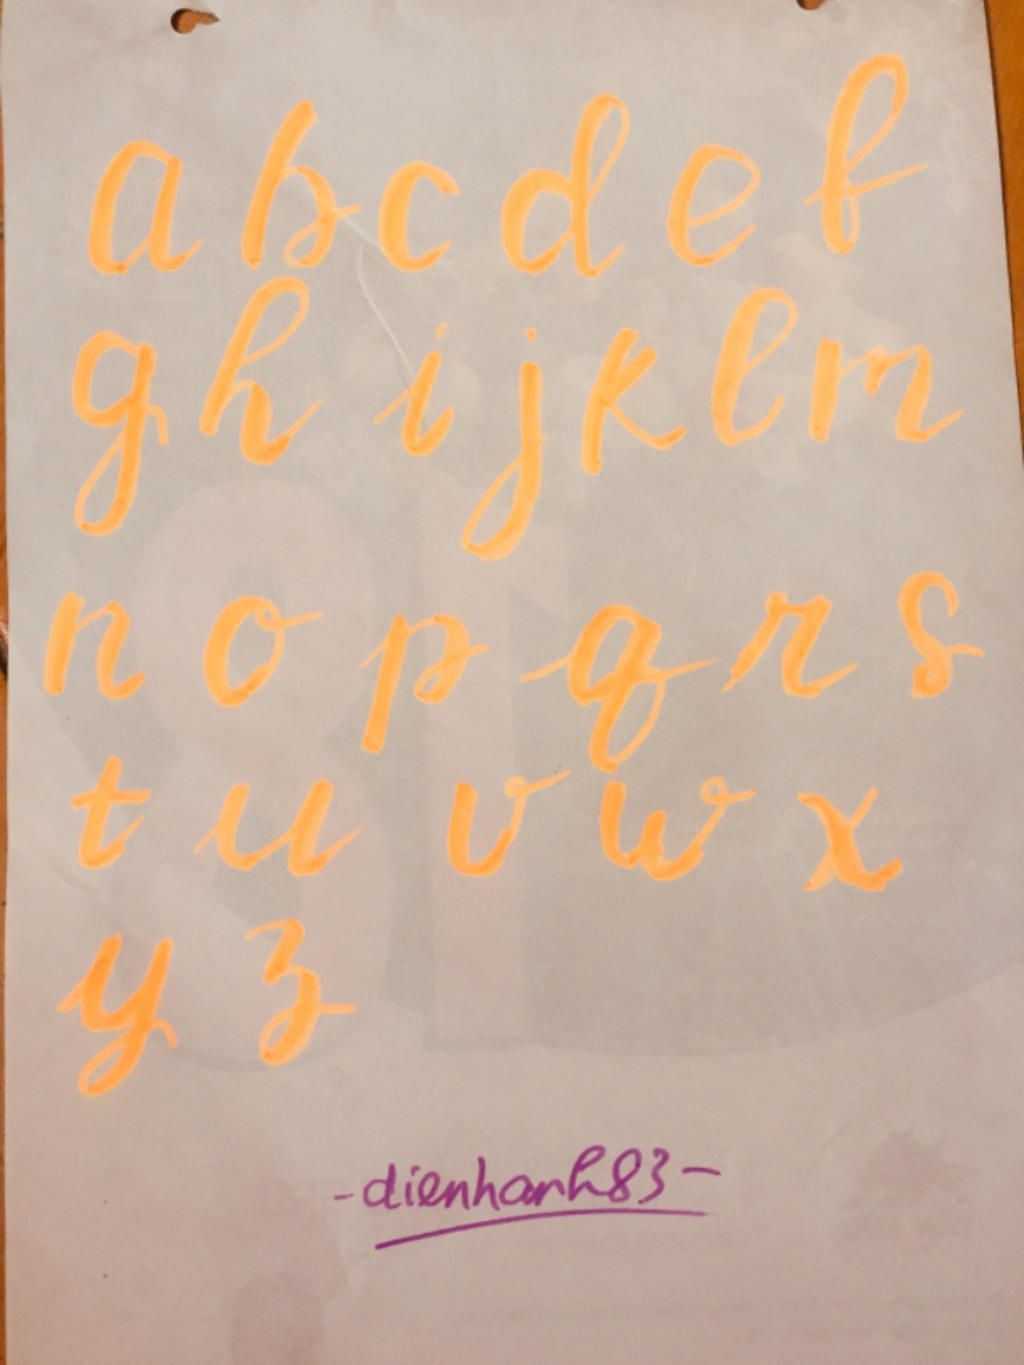 a b c d e f
g h i j k l m
n o p q r s
t u v w x
y z
-dienhanh83-